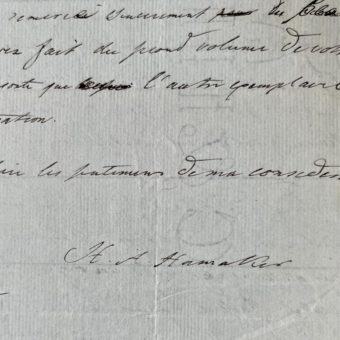 remercié sincerement du
fait du second volume de votre
que l'autre exemplaire
ation.
les sentimens de ma consider
H A Hamaker